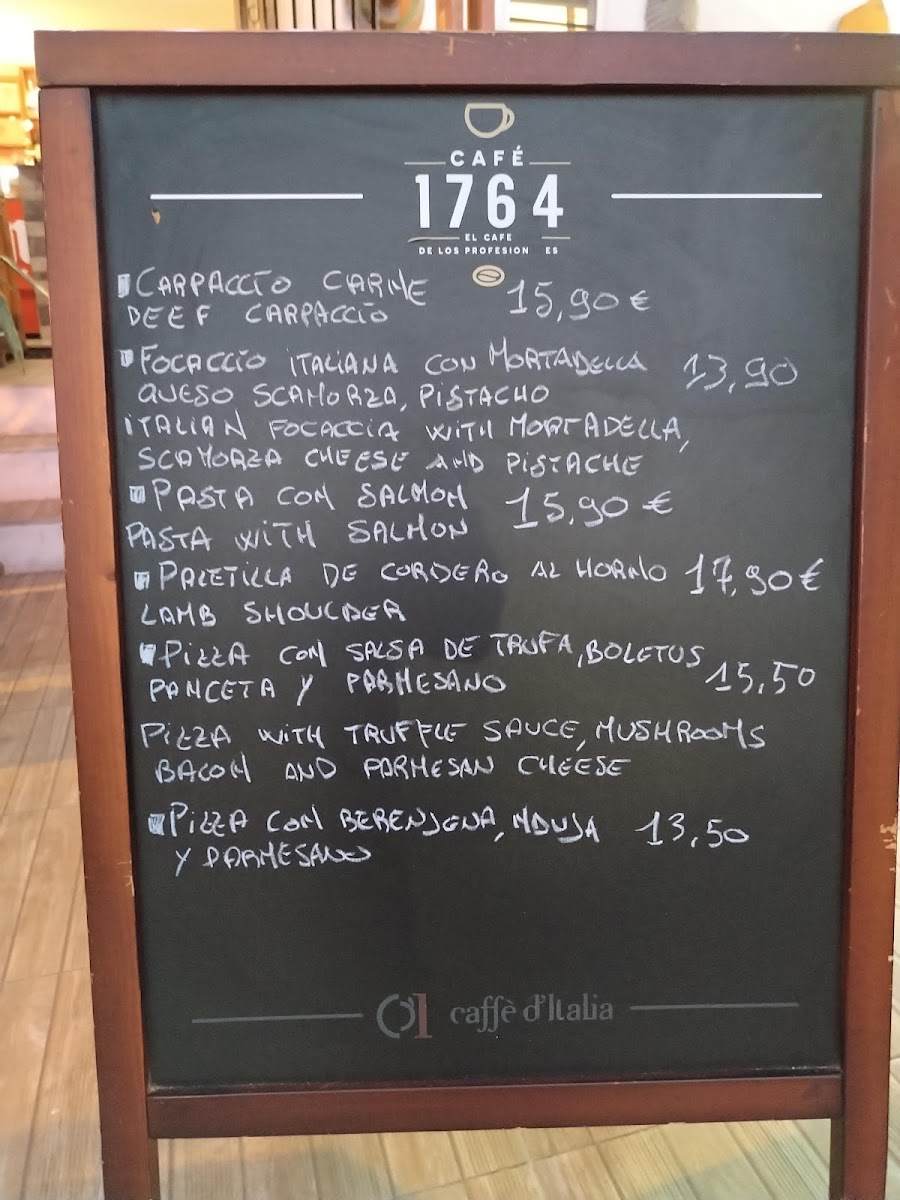 CAFÉ
1764
EL CAFE
DE LOS PROFESION ES
CARPACCIO CARNE 15,90 €
DEEF CARPACCIO
FOCACCIO ITALIANA CON MORTADELLA 13,90
QUESO SCAMORZA, PISTACHO
ITALIAN FOCACCIA WITH MORTADELLA,
SCAMORZA CHEESE AND PISTACHE
PASTA CON SALMON 15,90 €
PASTA WITH SALMON
PALETILLA DE CORDERO AL HORNO 17,90 €
LAMB SHOULDER
PIZZA CON SALSA DE TRUFA, BOLETUS
PANCETA Y PARMESANO 15,50
PIZZA WITH TRUFFLE SAUCE, MUSHROOMS
BACON AND PARMESAN CHEESE
PIZZA CON BERENJENA, NDUJA 13,50
Y PARMESANO
caffè d'Italia